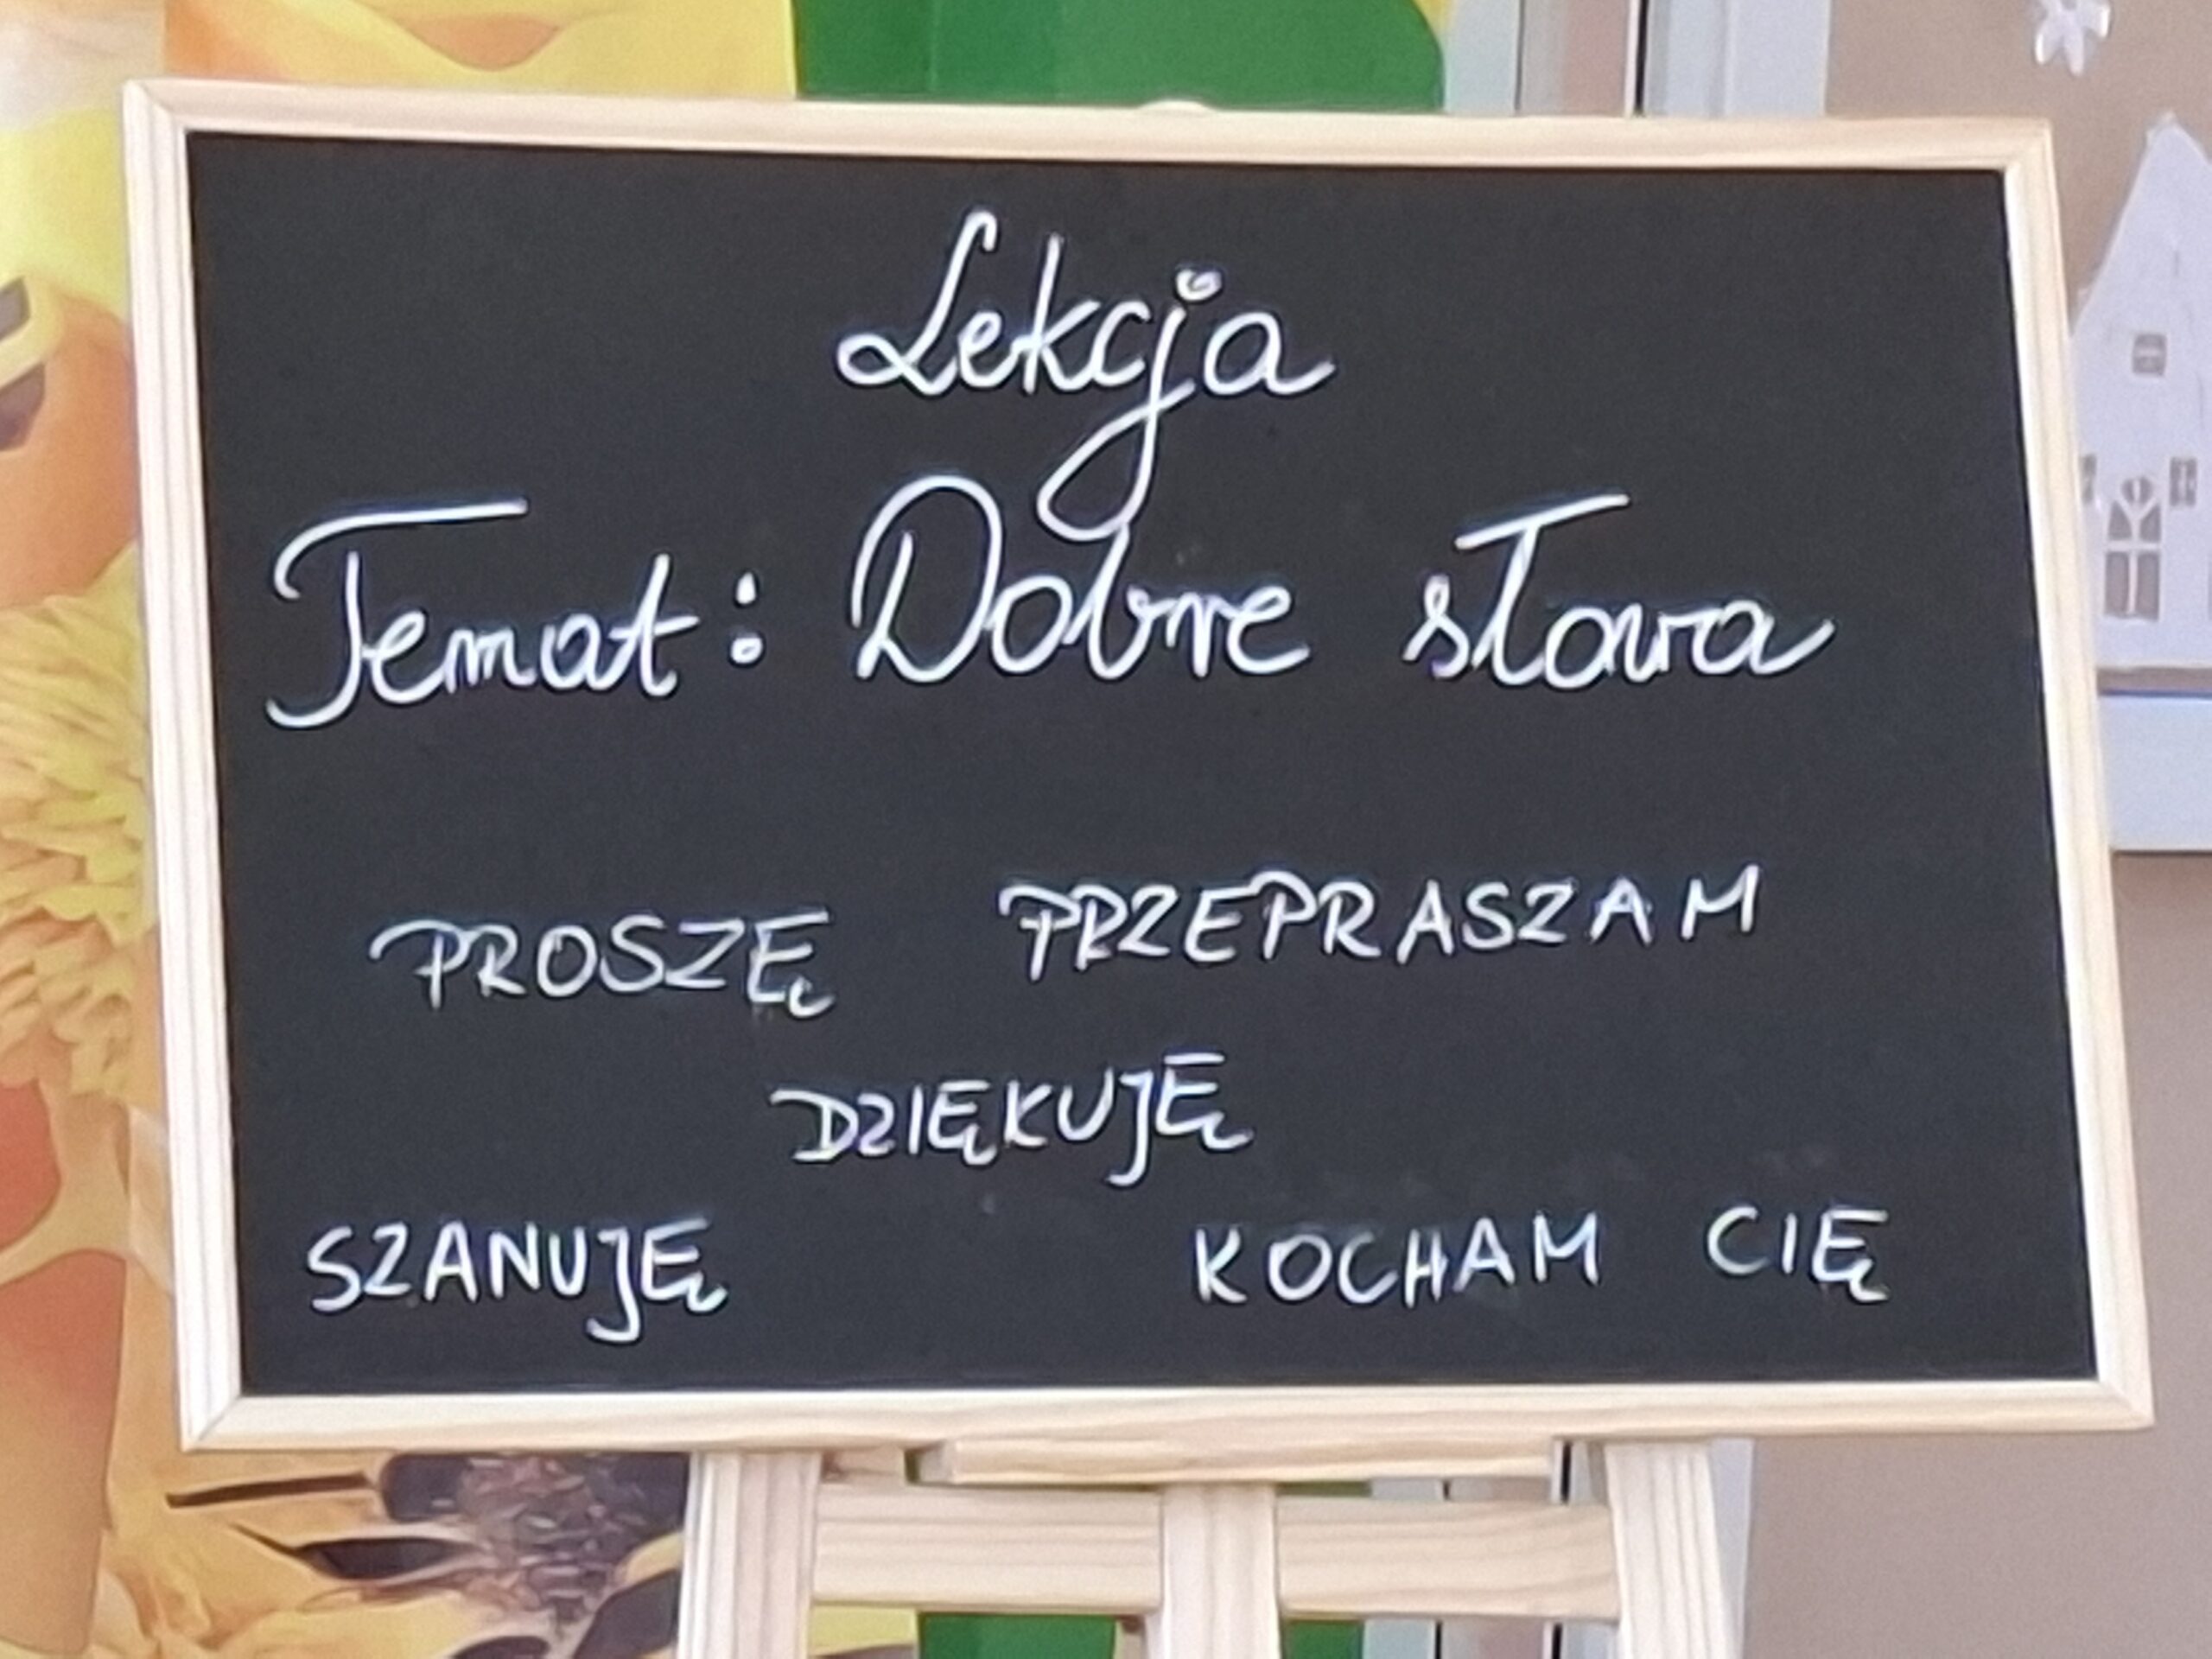 Lekcja
Temat: Dobre słowa
PROSZĘ PRZEPRASZAM
DZIĘKUJĘ
SZANUJĘ KOCHAM CIĘ